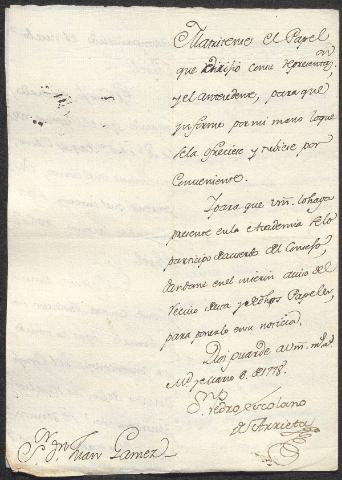 el Papel
que dirijio con su represent.on
y el antecedente, para que
ynforme por mi mano lo que
se la ofreciere y tubiere por
Combeniente.
Y para que Vm. lo haga
presente en la Academia se lo
participo de acuerdo del Consejo,
dandome en el interin aviso del
recivo de esta y de dhos Papeles,
para ponerlo en su noticia.
Dios guarde a Vm. m.s a.s
Md. y enero 8. de 1778.
Dn. Pedro Escolano
de Arrieta
S.r Dn. Juan Gamez